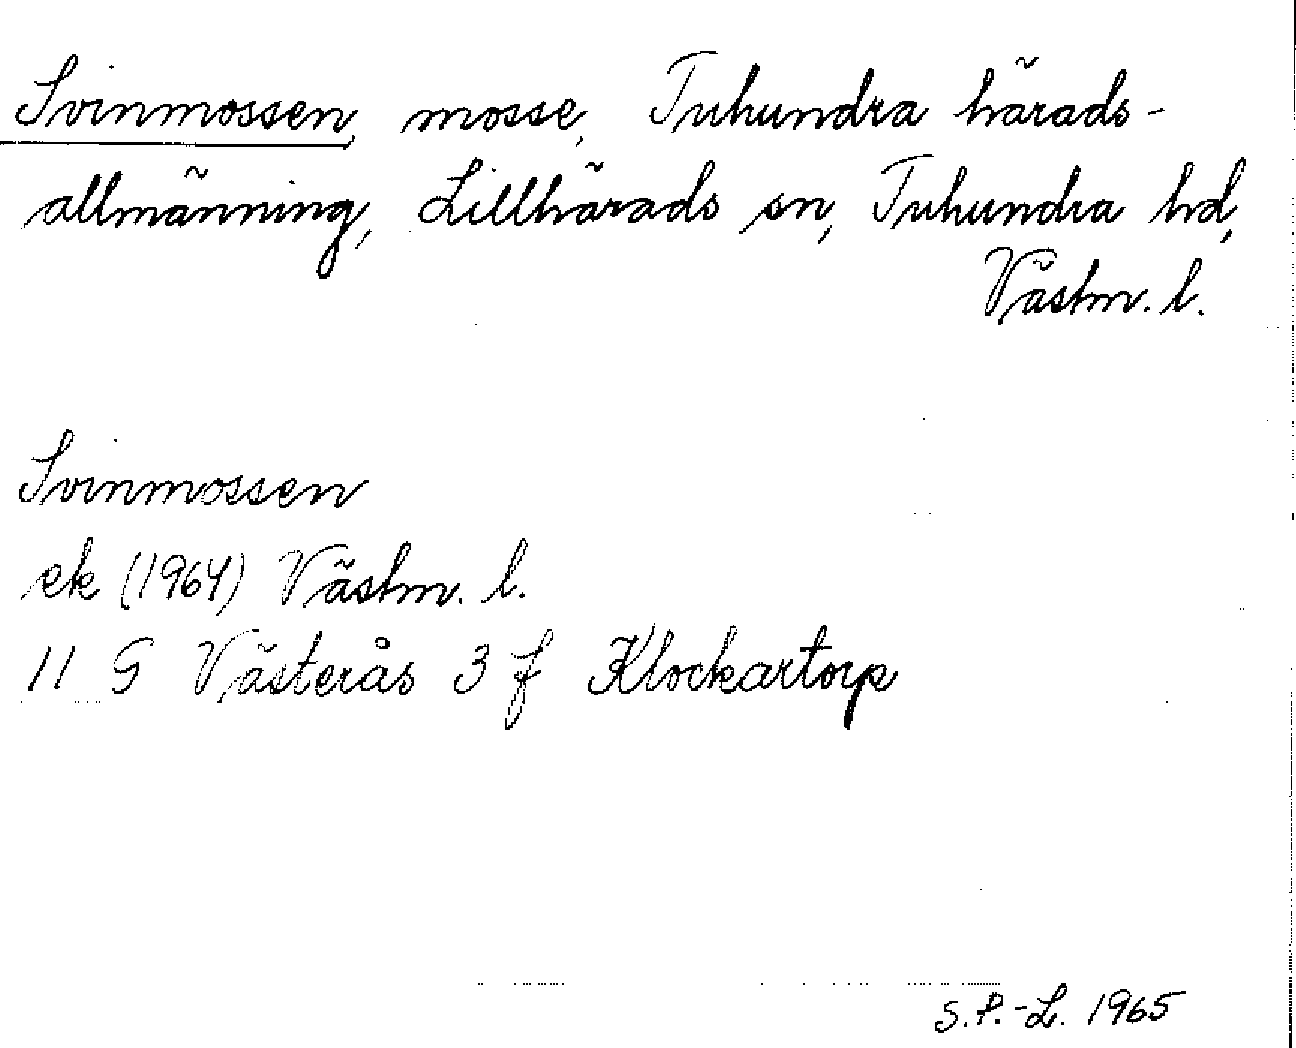 Svinmossen, mosse, Tuhundra härads-
allmänning, Lillhärads sn, Tuhundra hd,
Västm. l.
Svinmossen
ek (1964) Västm. l.
11 G Västerås 3 f Klockartorp
S.P.-L. 1965